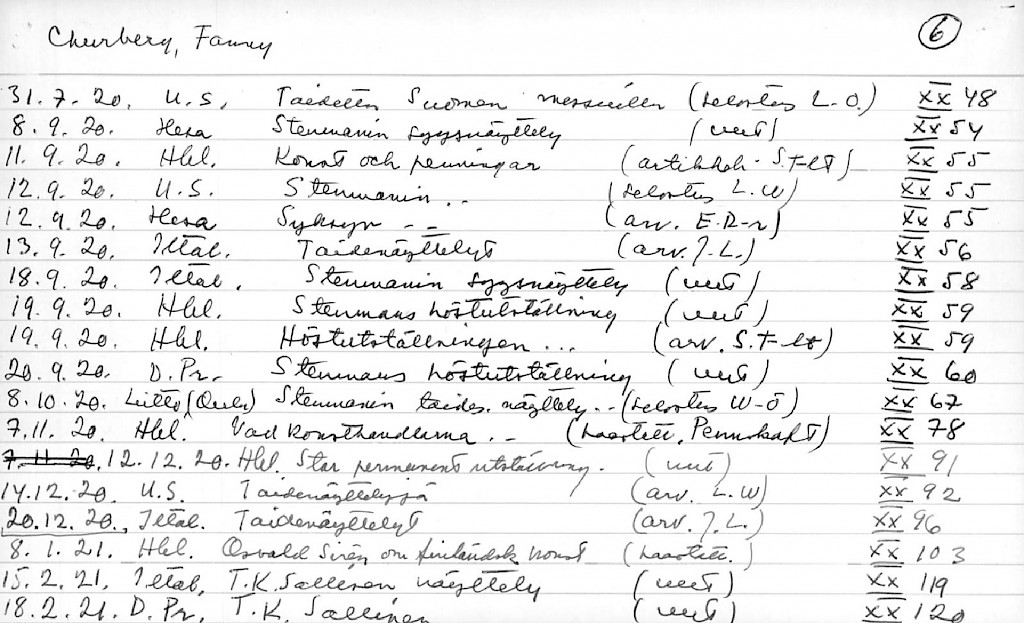 Churberg, Fanny 6
31.7.20. U.S. Taidetta Suomen messuilla (selostus L-O.) XX 48
8.9.20. Hesa Stenmanin syysnäyttely (uut) XX 54
11.9.20. Hbl. Konst och penningar (artikkeli S.T-lt) XX 55
12.9.20. U.S. Stenmanin .. (selostus L.W) XX 55
12.9.20. Hesa Syksyn -- (arv. E.R-r) XX 55
13.9.20. Iltal. Taidenäyttelyt (arv. J.L.) XX 56
18.9.20. Iltal. Stenmanin syysnäyttely (uut) XX 58
19.9.20. Hbl. Stenmans höstutställning (uut) XX 59
19.9.20. Hbl. Höstutställningen ... (arv. S.T-lt) XX 59
20.9.20. D.Pr. Stenmans höstutställning (uut) XX 60
8.10.20. (Oulu) Stenmanin taides. näyttely .. (selostus W-ö) XX 67
7.11.20. Hbl. Vad konsthandlarna .. XX 78
7.11.20. 12.12.20. Hbl. Stor permanent utställning. (uut) XX 91
14.12.20. U.S. Taidenäyttelyjä (arv. L.W) XX 92
20.12.20. Iltal. Taidenäyttelyt (arv. J.L.) XX 96
8.1.21. Hbl. Osvald Sirén om finländsk konst XX 103
15.2.21. Iltal. T.K. Sallinen näyttely (uut) XX 119
18.2.21. D.Pr. T.K. Sallinen (uut) XX 120